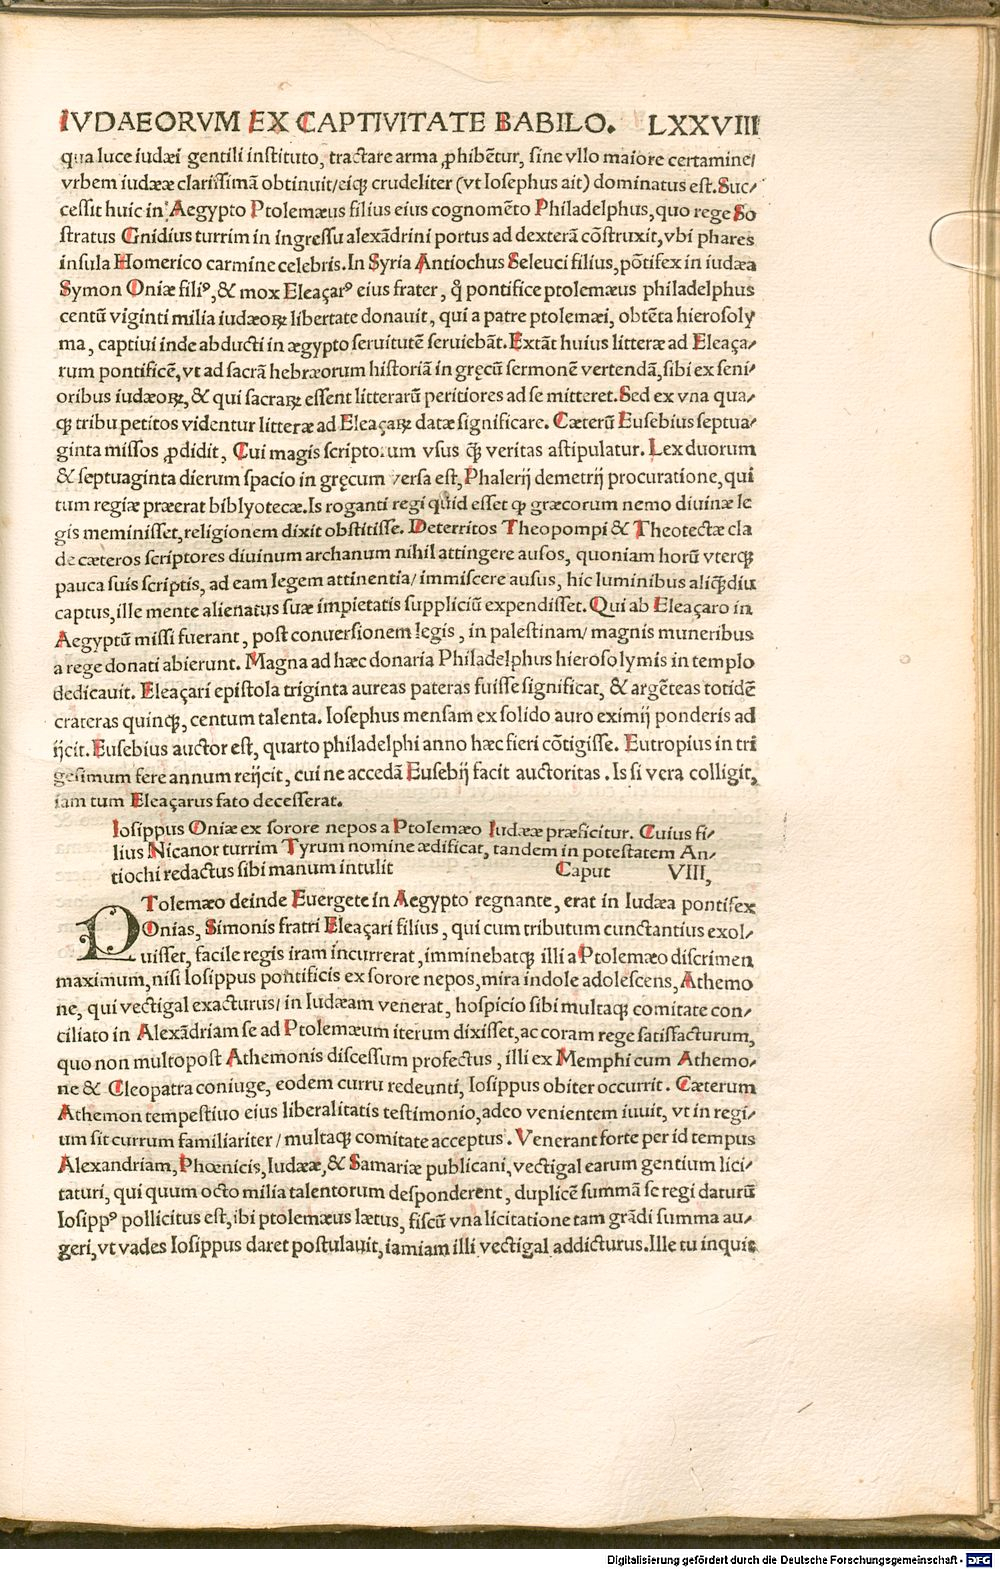 IVDAEORVM EX CAPTIVITATE BABILO. LXXVIII
qua luce iudæi gentili instituto, tractare arma ꝓhibẽtur, sine vllo maiore certamine/
vrbem iudææ clarissimã obtinuit/eiqꝫ crudeliter (vt Iosephus ait) dominatus est. Suc⸗
cessit huic in Aegypto Ptolemæus filius eius cognomẽto Philadelphus, quo rege So
stratus Gnidius turrim in ingressu alexãdrini portus ad dexterã cõstruxit, vbi phares
insula Homerico carmine celebris. In Syria Antiochus Seleuci filius, põtifex in iudæa
Symon Oniæ filiꝰ, & mox Eleaçarꝰ eius frater, q̃ pontifice ptolemæus philadelphus
centũ viginti milia iudæoꝝ libertate donauit, qui a patre ptolemæi, obtẽta hierosoly
ma, captiui inde abducti in ægypto seruitutẽ seruiebãt. Extãt huius litteræ ad Eleaça⸗
rum pontificẽ, vt ad sacrã hebræorum historiã in gręcũ sermonẽ vertendã, sibi ex seni⸗
oribus iudæoꝝ, & qui sacraꝝ essent litterarũ peritiores ad se mitteret. Sed ex vna qua⸗
qꝫ tribu petitos videntur litteræ ad Eleaçaꝝ datæ significare. Cæterũ Eusebius septua⸗
ginta missos ꝓdidit, Cui magis scriptorum vsus q̃ꝫ veritas astipulatur. Lex duorum
& septuaginta dierum spacio in gręcum versa est, Phalerij demetrij procuratione, qui
tum regiæ præerat biblyotecæ. Is roganti regi quid esset ꝙ græcorum nemo diuinæ le
gis meminisset, religionem dixit obstitisse. Deterritos Theopompi & Theotectæ cla
de cæteros scriptores diuinum archanum nihil attingere ausos, quoniam horũ vterqꝫ
pauca suis scriptis, ad eam legem attinentia/ immiscere ausus, hic luminibus aliq̃ꝫdiu
captus, ille mente alienatus suæ impietatis suppliciũ expendisset. Qui ab Eleaçaro in
Aegyptũ missi fuerant, post conuersionem legis, in palestinam/ magnis muneribus
a rege donati abierunt. Magna ad hæc donaria Philadelphus hierosolymis in templo
dedicauit. Eleaçari epistola triginta aureas pateras fuisse significat, & argẽteas totidẽ
crateras quinqꝫ, centum talenta. Iosephus mensam ex solido auro eximij ponderis ad
ijcit. Eusebius auctor est, quarto philadelphi anno hæc fieri cõtigisse. Eutropius in tri
gesimum fere annum reijcit, cui ne accedã Eusebij facit auctoritas. Is si vera colligit,
iam tum Eleaçarus fato decesserat.
Iosippus Oniæ ex sorore nepos a Ptolemæo Iudææ præficitur. Cuius fi⸗
lius Nicanor turrim Tyrum nomine ædificat, tandem in potestatem An⸗
tiochi redactus sibi manum intulit Caput VIII,
PTolemæo deinde Euergete in Aegypto regnante, erat in Iudæa pontifex
Onias, Simonis fratri Eleaçari filius, qui cum tributum cunctantius exol⸗
uisset, facile regis iram incurrerat, imminebatqꝫ illi a Ptolemæo discrimen
maximum, nisi Iosippus pontificis ex sorore nepos, mira indole adolescens, Athemo
ne, qui vectigal exacturus/ in Iudæam venerat, hospicio sibi multaqꝫ comitate con⸗
ciliato in Alexãdriam se ad Ptolemæum iterum dixisset, ac coram rege satisfacturum,
quo non multopost Athemonis discessum profectus, illi ex Memphi cum Athemo⸗
ne & Cleopatra coniuge, eodem curru redeunti, Iosippus obiter occurrit. Cæterum
Athemon tempestiuo eius liberalitatis testimonio, adeo venientem iuuit, vt in regi⸗
um sit currum familiariter / multaqꝫ comitate acceptus. Venerant forte per id tempus
Alexandriam, Phœnicis, Iudææ, & Samariæ publicani, vectigal earum gentium lici⸗
taturi, qui quum octo milia talentorum desponderent, duplicẽ summã se regi daturũ
Iosippꝰ pollicitus est, ibi ptolemæus lætus, fiscũ vna licitatione tam grãdi summa au⸗
geri, vt vades Iosippus daret postulauit, iamiam illi vectigal addicturus. Ille tu inquit
Digitalisierung gefördert durch die Deutsche Forschungsgemeinschaft - DFG